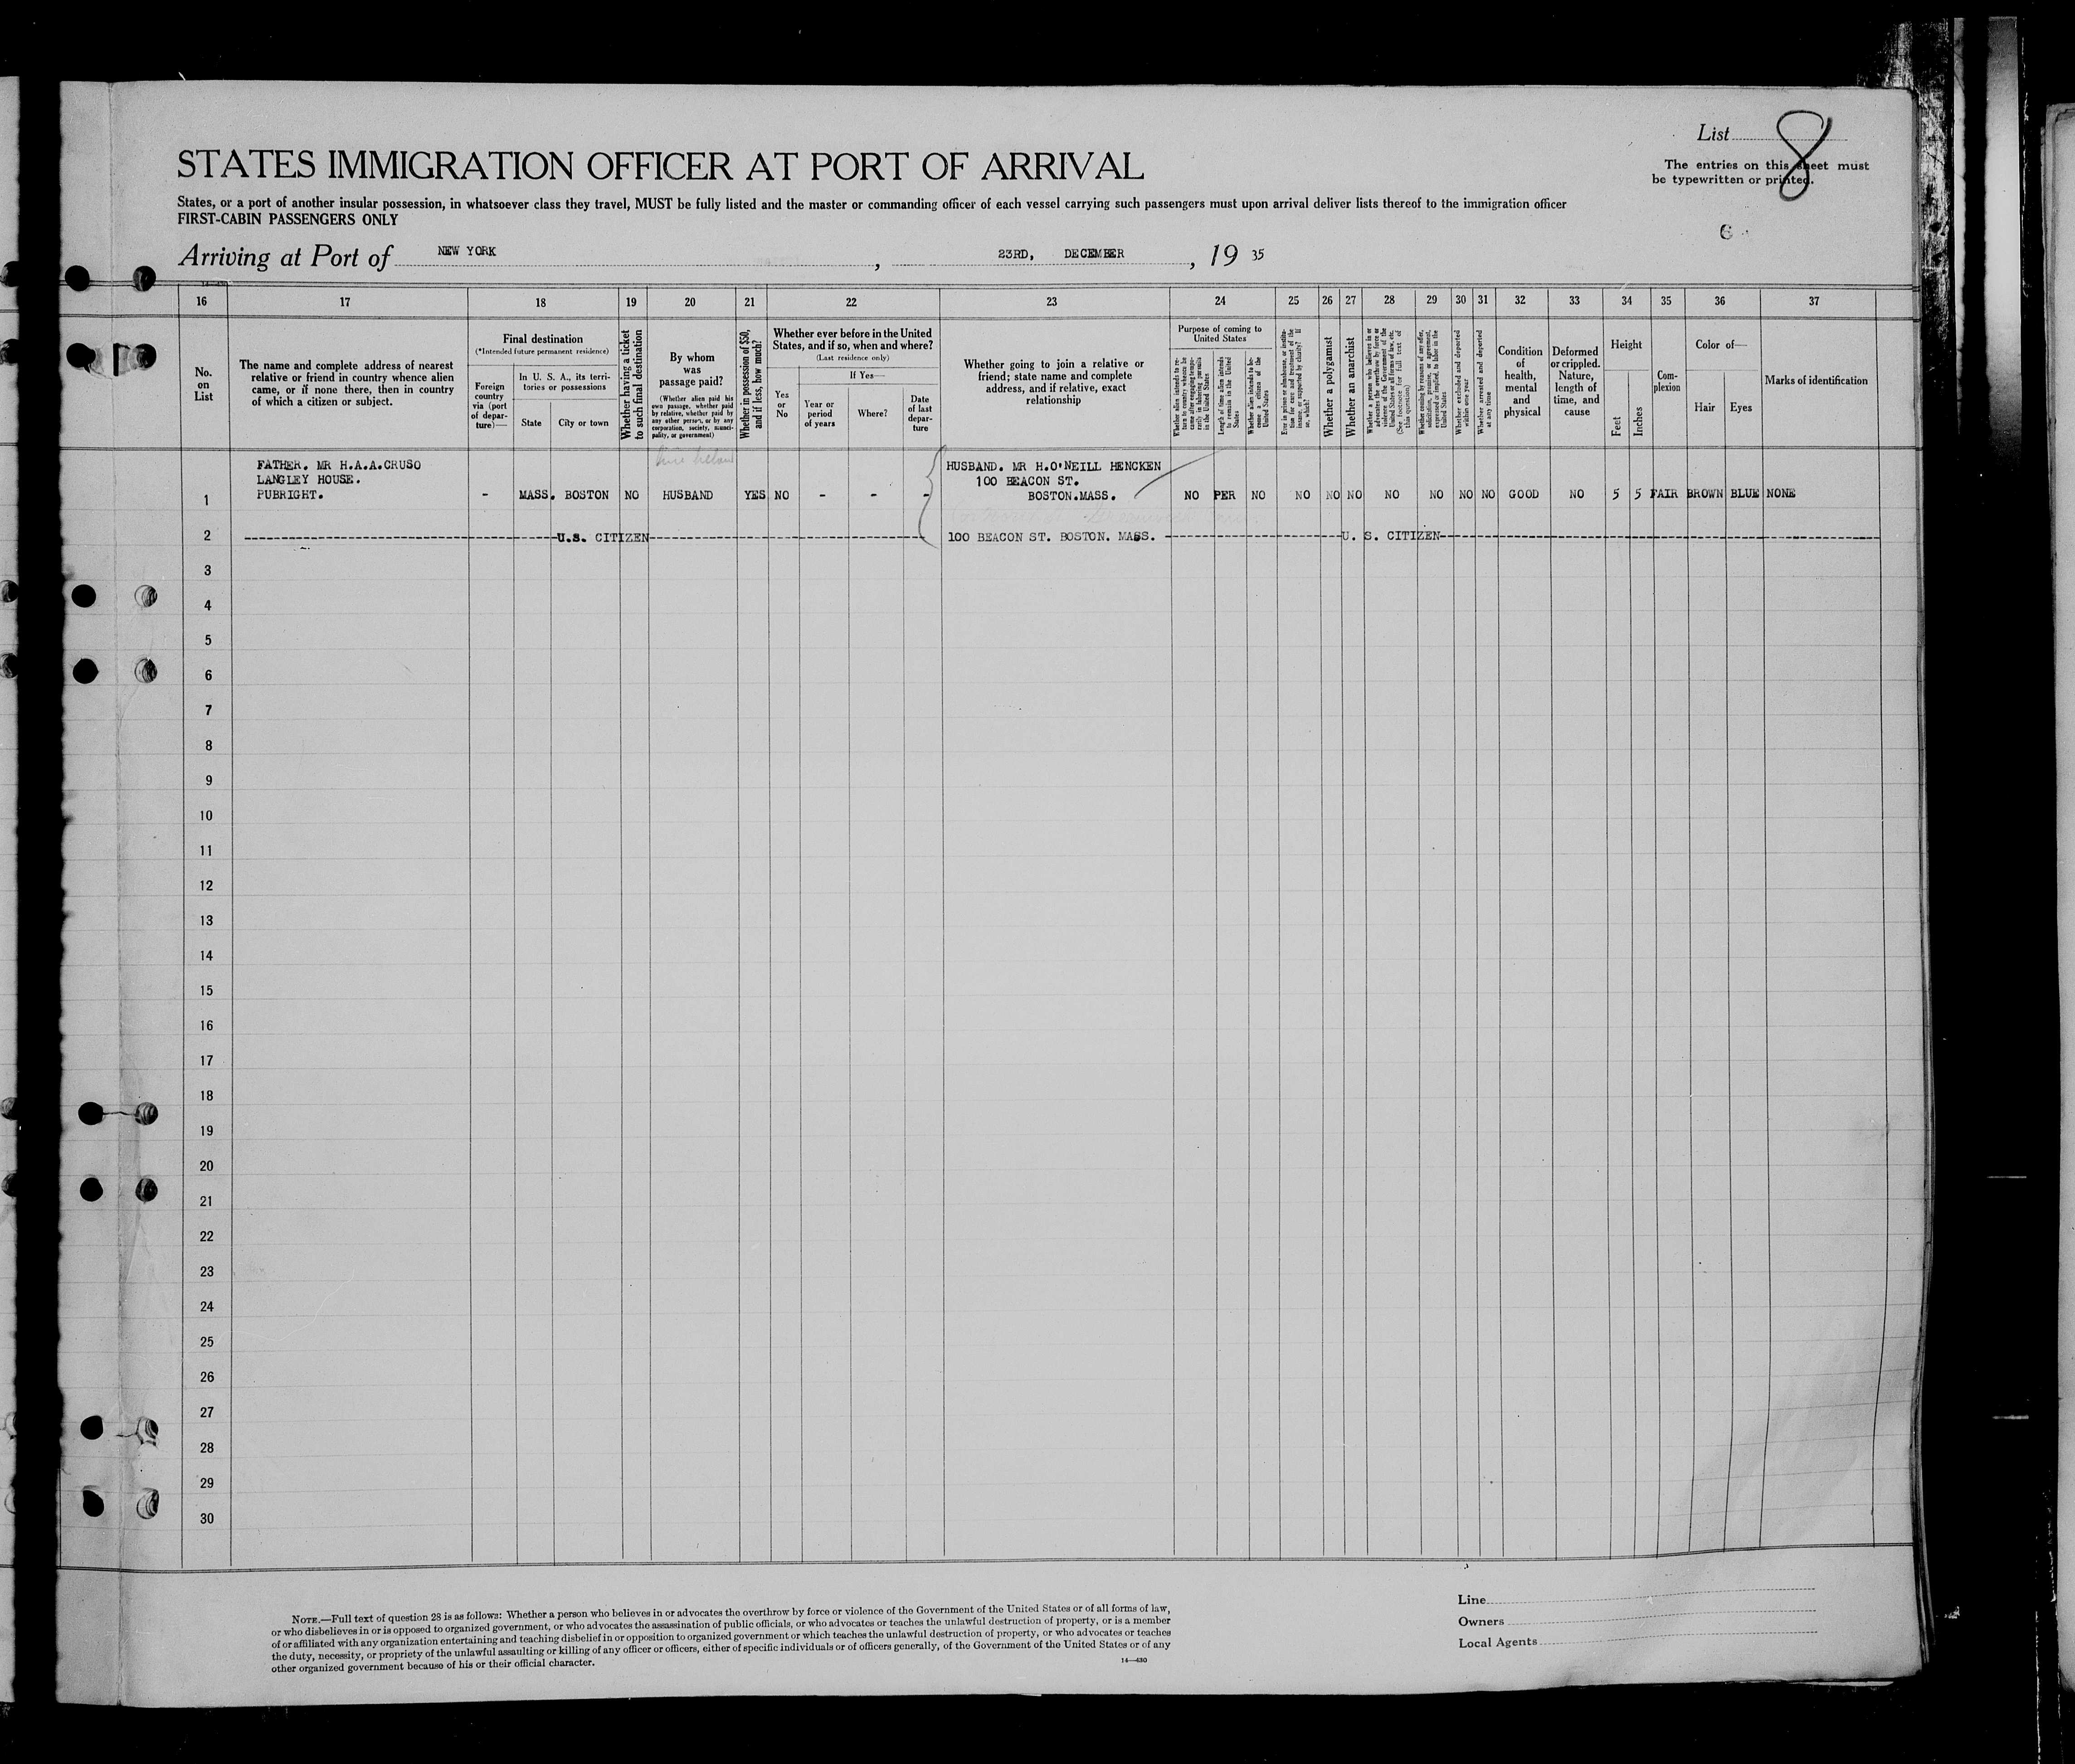 List 8
The entries on this sheet must
be typewritten or printed.
STATES IMMIGRATION OFFICER AT PORT OF ARRIVAL
States, or a port of another insular possession, in whatsoever class they travel, MUST be fully listed and the master or commanding officer of each vessel carrying such passengers must upon arrival deliver lists thereof to the immigration officer
FIRST-CABIN PASSENGERS ONLY
6
Arriving at Port of NEW YORK , 23RD, DECEMBER , 19 35
16 17 18 19 20 21 22 23 24 25 26 27 28 29 30 31 32 33 34 35 36 37
No.
on
List
The name and complete address of nearest
relative or friend in country whence alien
came, or if none there, then in country
of which a citizen or subject.
Final destination
(*Intended future permanent residence)
Foreign
country
via (port
of depar-
ture)—
In U. S. A., its terri-
tories or possessions
State
City or town
Whether having a ticket
to such final destination
By whom
was
passage paid?
(Whether alien paid his
own passage, whether paid
by relative, whether paid by
any other person, or by any
corporation, society, munici-
pality, or government)
Whether in possession of $50,
and if less, how much?
Whether ever before in the United
States, and if so, when and where?
(Last residence only)
Yes
or
No
If Yes—
Year or
period
of years
Where?
Date
of last
depar-
ture
Whether going to join a relative or
friend; state name and complete
address, and if relative, exact
relationship
Purpose of coming to
United States
Whether alien intends to re-
turn to country whence he
came after engaging tempo-
rarily in laboring pursuits
in the United States
Length of time alien intends
to remain in the United
States
Whether alien intends to be-
come a citizen of the
United States
Ever in prison or almshouse, or institu-
tion for care and treatment of the
insane, or supported by charity? If
so, which?
Whether a polygamist
Whether an anarchist
Whether a person who believes in or
advocates the overthrow by force or
violence of the Government of the
United States or all forms of law, etc.
(See footnote for full text of
this question)
Whether coming by reasons of any offer,
solicitation, promise, or agreement,
expressed or implied, to labor in the
United States
Whether excluded and deported
within one year
Whether arrested and deported
at any time
Condition
of
health,
mental
and
physical
Deformed
or crippled.
Nature,
length of
time, and
cause
Height
Feet
Inches
Com-
plexion
Color of—
Hair
Eyes
Marks of identification
FATHER. MR H.A.A.CRUSO
LANGLEY HOUSE.
PUBRIGHT.
HUSBAND. MR H.O'NEILL HENCKEN
100 BEACON ST.
BOSTON.MASS.
1 - MASS. BOSTON NO HUSBAND YES NO - - - NO PER NO NO NO NO NO NO NO NO GOOD NO 5 5 FAIR BROWN BLUE NONE
2 U.S. CITIZEN 100 BEACON ST. BOSTON. MASS. U. S. CITIZEN
3
4
5
6
7
8
9
10
11
12
13
14
15
16
17
18
19
20
21
22
23
24
25
26
27
28
29
30
NOTE.—Full text of question 28 is as follows: Whether a person who believes in or advocates the overthrow by force or violence of the Government of the United States or of all forms of law,
or who disbelieves in or is opposed to organized government, or who advocates the assassination of public officials, or who advocates or teaches the unlawful destruction of property, or is a member
of or affiliated with any organization entertaining and teaching disbelief in or opposition to organized government or which teaches the unlawful destruction of property, or who advocates or teaches
the duty, necessity, or propriety of the unlawful assaulting or killing of any officer or officers, either of specific individuals or of officers generally, of the Government of the United States or of any
other organized government because of his or their official character.
14—430
Line
Owners
Local Agents